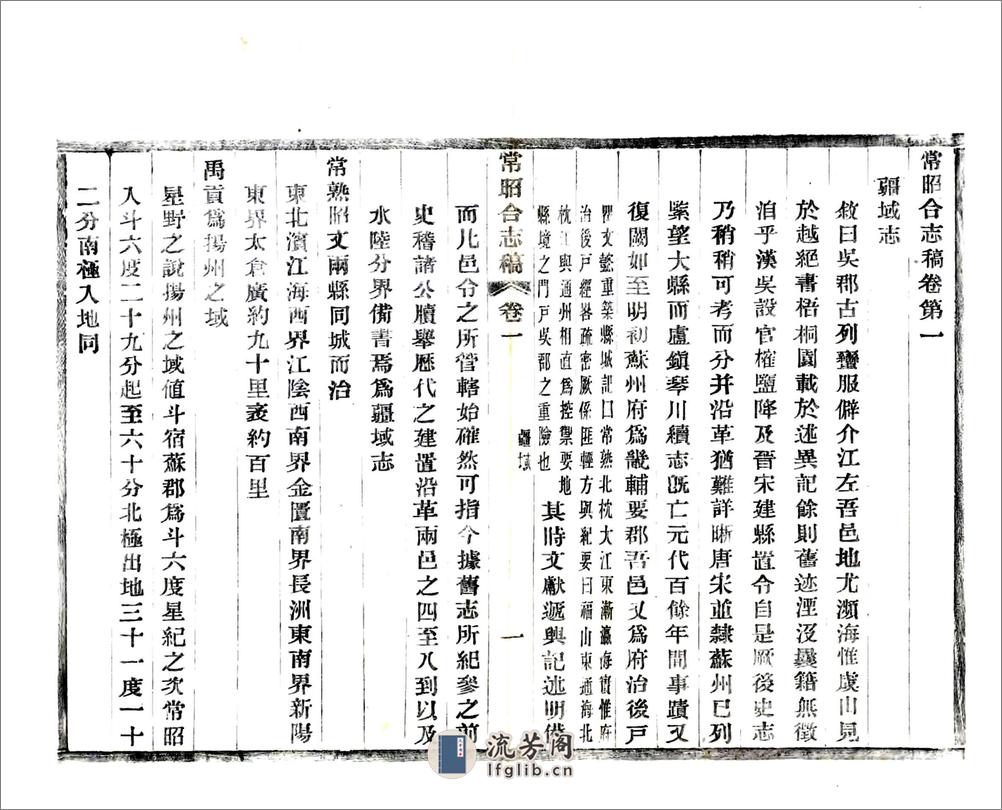 常昭合志稿卷第一
疆域志
敘曰吳郡古列蠻服僻介江左吾邑地尤瀕海惟虞山見
於越絕書梧桐園載於述異記餘則舊迹湮沒曩籍無徵
洎乎漢吳設官榷鹽降及晉宋建縣置令自是厥後史志
乃稍稍可考而分并沿革猶難詳晰唐宋並隸蘇州已列
紫望大縣而盧鎮琴川續志旣亡元代百餘年間事蹟又
復闕如至明初蘇州府爲畿輔要郡吾邑又爲府治後戶
瞿文懿重築縣城記曰常熟北枕大江東漸瀛海實惟府
治後戶經畧疏密厥係匪輕方輿紀要曰福山東通海北
枕江與通州相直爲控禦要地
縣境之門戶吳郡之重險也
其時文獻遞興記述明備
常昭合志稿
卷一
疆域
一
而凡邑令之所管轄始確然可指今據舊志所紀參之前
史稽諸公牘舉歷代之建置沿革兩邑之四至八到以及
水陸分界備書焉爲疆域志
常熟昭文兩縣同城而治
東北濱江海西界江陰西南界金匱南界長洲東南界新陽
東界太倉廣約九十里袤約百里
禹貢爲揚州之域
星野之說揚州之域値斗宿蘇郡爲斗六度星紀之次常昭
入斗六度二十九分起至六十分北極出地三十一度一十
二分南極入地同
流芳閣
lfglib.cn